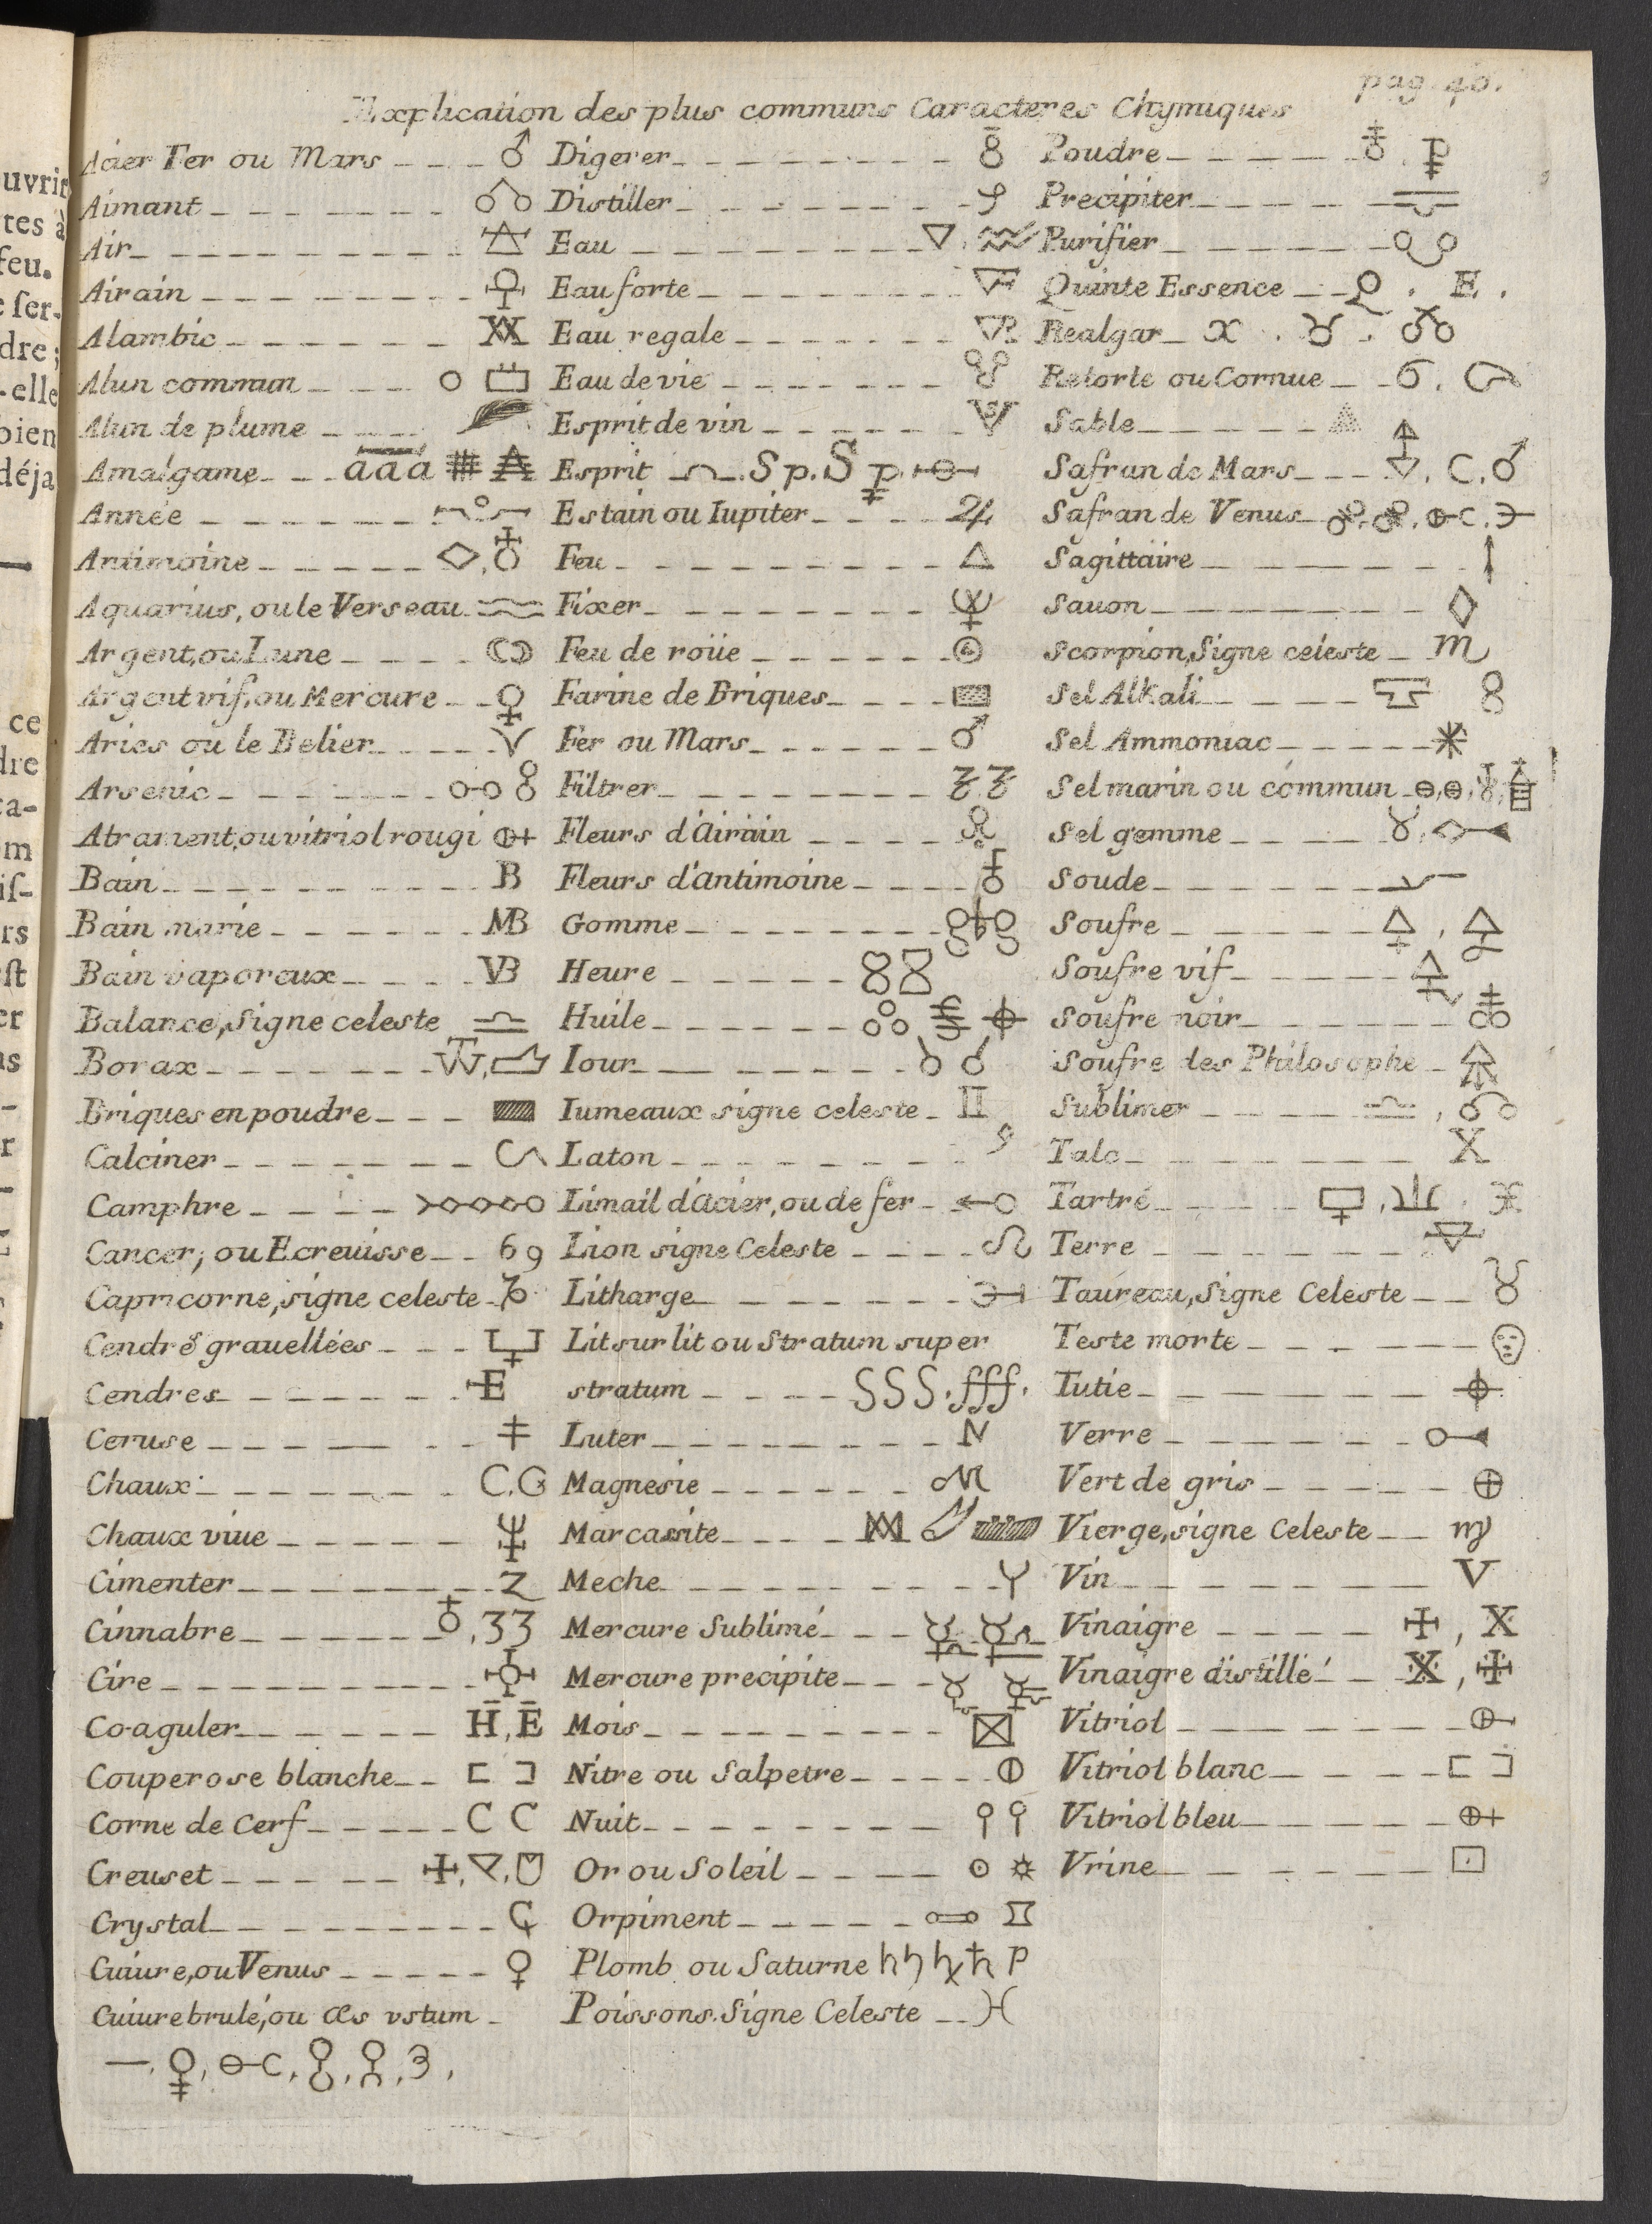 pag. 40.
Explication des plus communs Caracteres Chymiques
uvrir
tes à
feu.
e ſer-
dre;
-elle
bien
déja
ce
dre
ca-
om
iſ-
rs
ſt
er
ns
r
Acier Fer ou Mars ♂
Aimant
Air
Airain
Alambic
Alun commun
Alun de plume
Amalgame aaa
Année
Antimoine
Aquarius, ou le Verseau
Argent, ou Lune
Argent vif, ou Mercure
Aries ou le Belier
Arsenic
Atrament, ou vitriol rougi
Bain B
Bain marie MB
Bain vaporeux VB
Balance, Signe celeste
Borax
Briques en poudre
Calciner
Camphre
Cancer, ou Ecreuisse 69
Capricorne, signe celeste
Cendrē grauellées
Cendres E
Ceruse
Chaux C. G
Chaux viue
Cimenter Z
Cinnabre , 33
Cire
Co-aguler H̄, Ē
Couperose blanche
Corne de Cerf C C
Creuset
Crystal
Cuiure, ou Venus ♀
Cuiure brulé, ou æs vstum
Digerer
Distiller
Eau ▽
Eau forte
Eau regale
Eau de vie
Esprit de vin
Esprit Sp. S
Estain ou Iupiter ♃
Feu △
Fixer
Feu de roüe
Farine de Briques
Fer ou Mars ♂
Filtrer
Fleurs d'Airain
Fleurs d'antimoine
Gomme
Heure
Huile
Iour
Iumeaux signe celeste ♊
Laton
Limail d'acier, ou de fer
Lion signe Celeste ♌
Litharge
Lit sur lit ou Stratum super
stratum SSS. fff.
Luter
Magnesie
Marcassite
Meche
Mercure Sublimé
Mercure precipite
Mois
Nitre ou Salpetre
Nuit
Or ou Soleil ☉
Orpiment
Plomb ou Saturne ♄ P
Poissons. Signe Celeste ♓
Poudre
Precipiter
Purifier
Quinte Essence . E .
Realgar
Retorte ou Cornue
Sable
Safran de Mars
Safran de Venus
Sagittaire
Sauon
Scorpion, Signe celeste ♏
Sel Alkali
Sel Ammoniac
Sel marin ou commun
Sel gemme
Soude
Soufre
Soufre vif
Soufre noir
Soufre des Philosophe
Sublimer
Talc X
Tartre
Terre
Taureau, Signe Celeste ♉
Teste morte
Tutie
Verre
Vert de gris ⊕
Vierge, signe Celeste ♍
Vin V
Vinaigre , X
Vinaigre distillé
Vitriol
Vitriol blanc
Vitriol bleu
Vrine